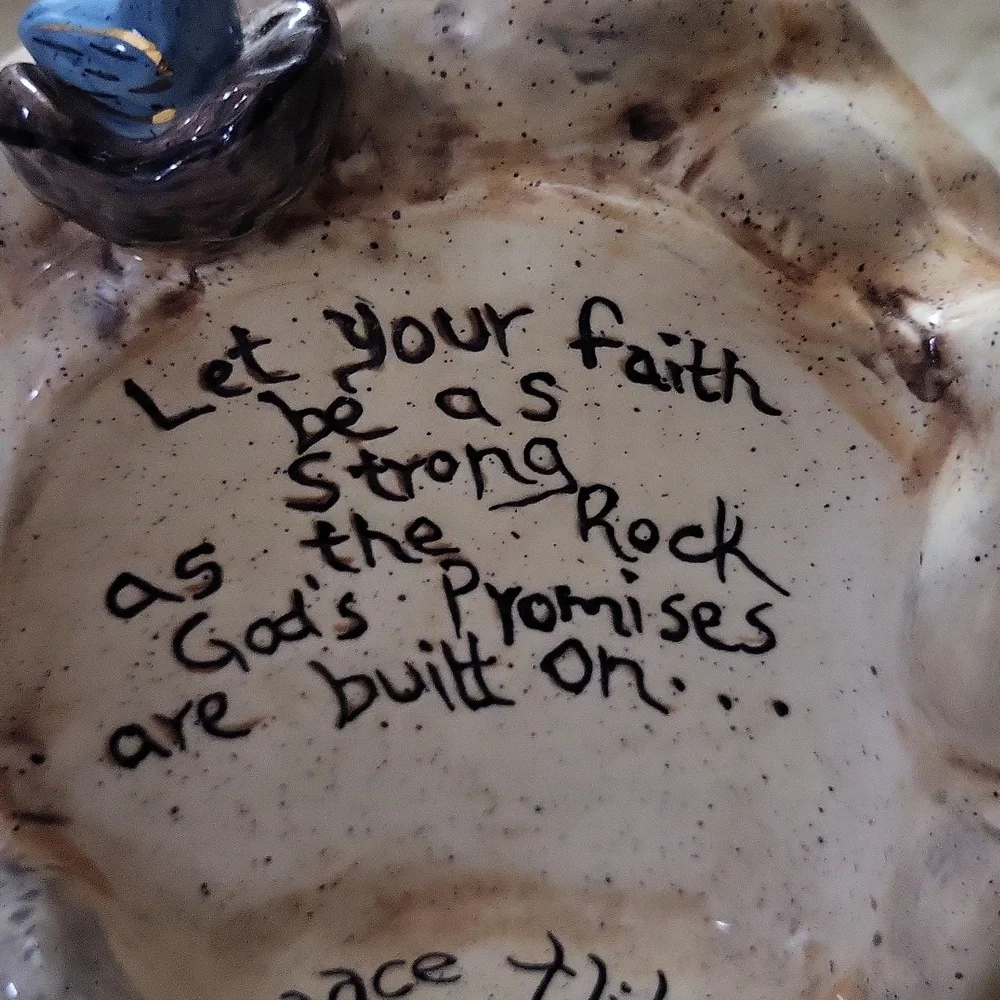 Let your faith
be as
Strong
as the Rock
God's Promises
are built on...